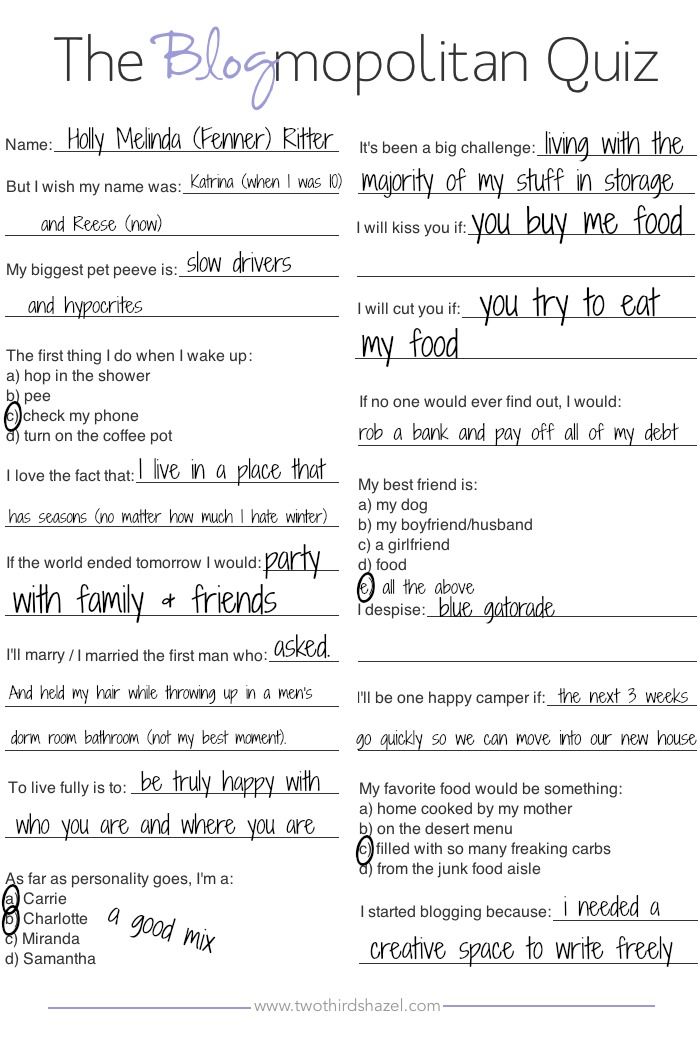 The Blogmopolitan Quiz
Name: Holly Melinda (Fenner) Ritter
But I wish my name was: Katrina (when I was 10)
and Reese (now)
My biggest pet peeve is: slow drivers
and hypocrites
The first thing I do when I wake up:
a) hop in the shower
b) pee
c) check my phone
d) turn on the coffee pot
I love the fact that: I live in a place that
has seasons (no matter how much I hate winter)
If the world ended tomorrow I would: party
with family & friends
I'll marry / I married the first man who: asked.
And held my hair while throwing up in a men's
dorm room bathroom (not my best moment).
To live fully is to: be truly happy with
who you are and where you are
As far as personality goes, I'm a:
a) Carrie
b) Charlotte
c) Miranda
d) Samantha
a good mix
It's been a big challenge: living with the
majority of my stuff in storage
I will kiss you if: you buy me food
I will cut you if: you try to eat
my food
If no one would ever find out, I would:
rob a bank and pay off all of my debt
My best friend is:
a) my dog
b) my boyfriend/husband
c) a girlfriend
d) food
e) all the above
I despise: blue gatorade
I'll be one happy camper if: the next 3 weeks
go quickly so we can move into our new house
My favorite food would be something:
a) home cooked by my mother
b) on the desert menu
c) filled with so many freaking carbs
d) from the junk food aisle
I started blogging because: i needed a
creative space to write freely
www.twothirdshazel.com